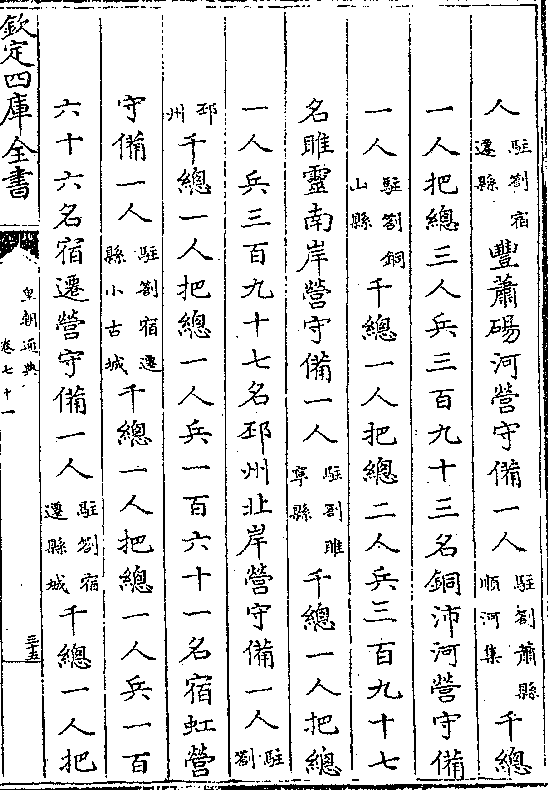 人駐劄宿遷縣豐蕭碭河營守備一人駐劄蕭縣順河集千總
一人把總三人兵三百九十三名銅沛河營守備
一人駐劄銅山縣千總一人把總二人兵三百九十七
名睢靈南岸營守備一人駐劄睢寧縣千總一人把總
一人兵三百九十七名邳州北岸營守備一人駐劄
邳州千總一人把總一人兵一百六十一名宿虹營
守備一人駐劄宿遷縣小古城千總一人把總一人兵一百
六十六名宿遷營守備一人駐劄宿遷縣城千總一人把
欽定四庫全書
皇朝通典
卷七十一
三十五